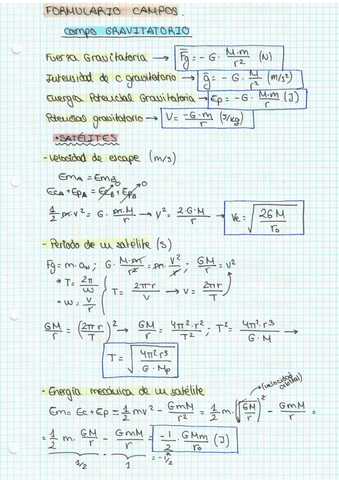 FORMULARIO CAMPOS.
Campo GRAVITATORIO
Fuerza Gravitatoria → F̄g = - G · M·m/r² (N)
Intensidad de c gravitatorio → ḡ = - G · M/r² (m/s²)
Energia Potencial Gravitatoria → Ep = - G · M·m/r (J)
Potencial gravitatorio → V = -G·M/r (J/kg)
• SATÉLITES
- Velocidad de escape (m/s)
EmA = EmB
EcA + EpA = EcB + EpB 0 0
1/2 m·v² = G · m·M/r → v² = 2·G·M/r → Ve = √(2GM/r₀)
- Periodo de un satélite (s)
Fg = m·an ; G · M·m/r² = m · v²/r ; GM/r = v²
* T = 2π/w
* w = v/r
T = 2πr/v → v = 2πr/T
GM/r = (2πr/T)² → GM/r = 4π²·r²/T² ; T² = 4π²·r³/G·M →
T = √(4π²·r³/G·Mp)
- Energía mecánica de un satélite
(velocidad orbital)
Em = Ec + Ep = 1/2 mv² - GmM/r = 1/2 m·(√(GM/r))² - GmM/r =
= 1/2 m · GM/r - GmM/r = -1/2 · GMm/r₀ (J)
1/2 - 1 = -1/2